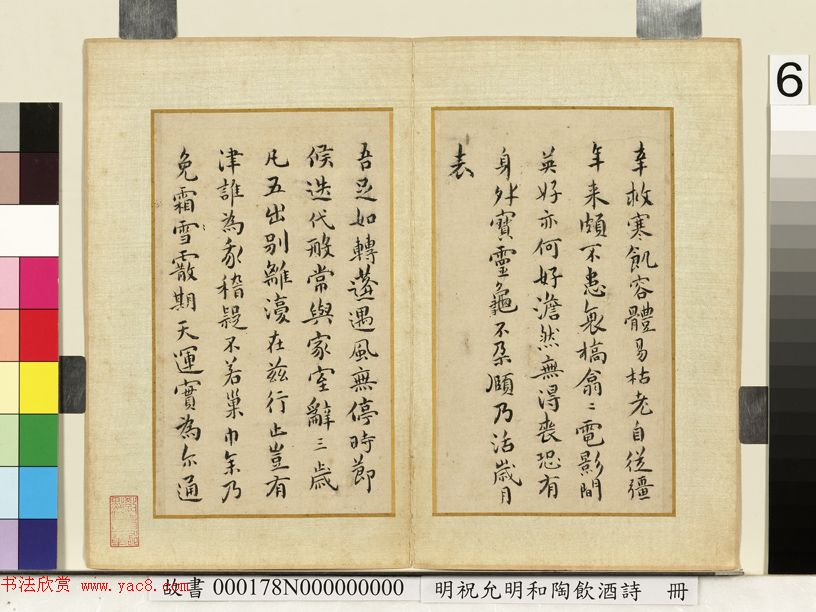 幸救寒飢容體易枯老自從彊
年来頗不患裒槁翕〻電影間
英好亦何好澹然無得喪恐有
身外寶靈龜不朶頤乃活歲月
表
吾足如轉蓬遇風無停時節
候迭代般常與家室辭三歲
凡五出別離
在茲行止豈有
津誰為
稽疑不若巢巾年乃
免霜雪霰期天運實為尔通
6
书法欣赏 www.yac8.com
故書 000178N000000000
明祝允明和陶飲酒詩 冊